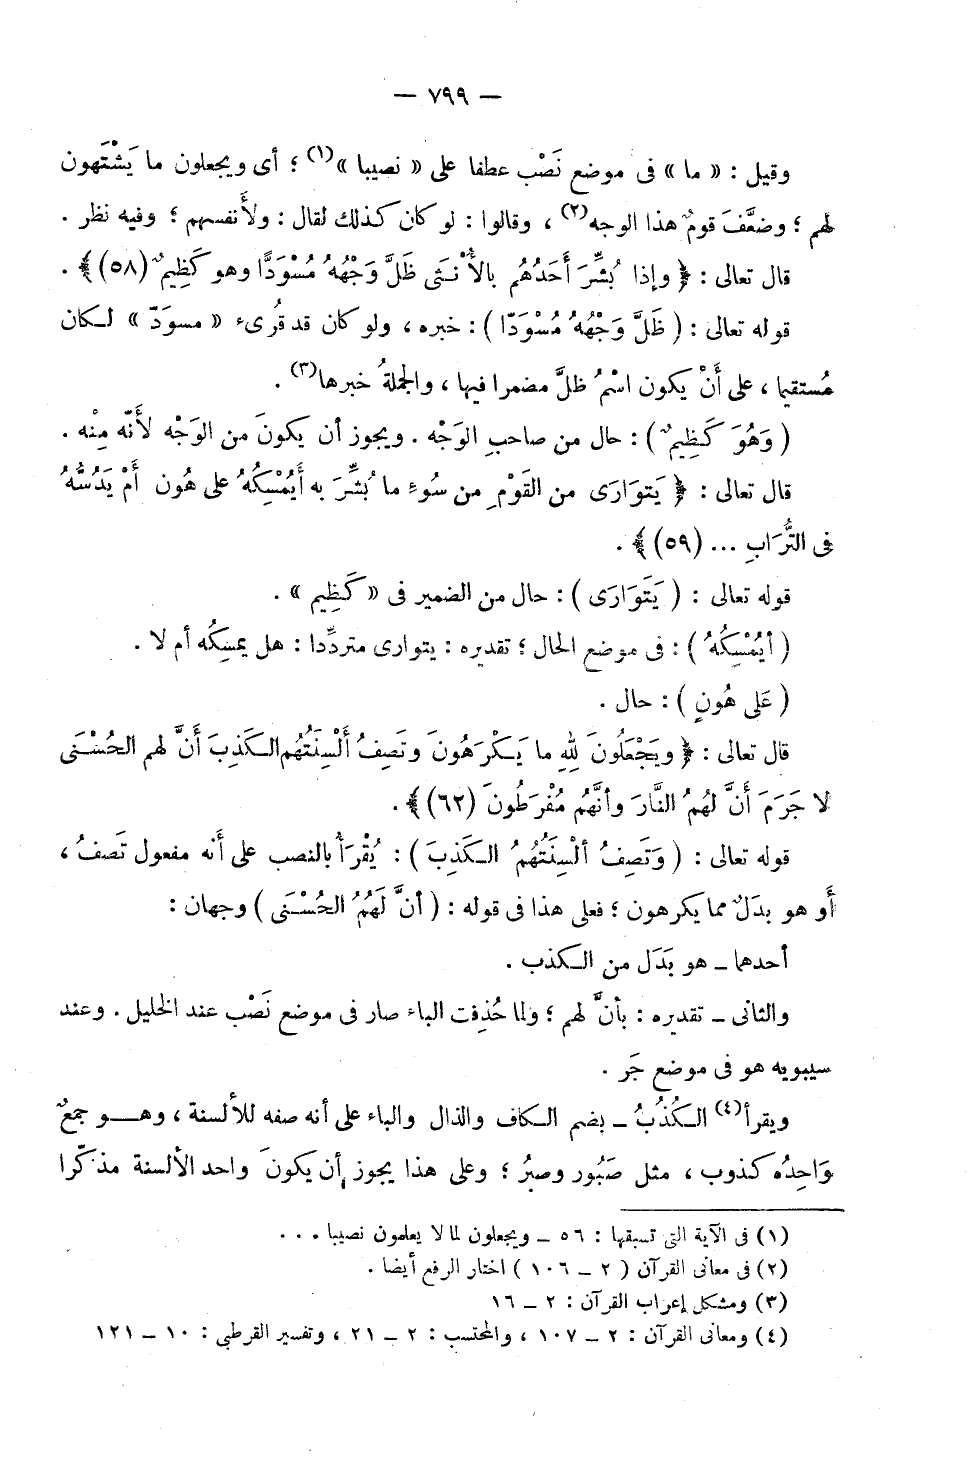 — ٧٩٩ —
وقيل : « ما » فى موضع نَصْب عطفا على « نصيبا »(١) ؛ أى ويجعلون ما يَشْتَهون
لهم ؛ وضعَّفَ قومٌ هذا الوجه(٢) ، وقالوا : لو كان كذلك لقال : ولأَنفسهم ؛ وفيه نظر .
قال تعالى : ﴿ وإذا بُشِّرَ أَحَدُهُم بالأُنْثَى ظَلَّ وَجْهُهُ مُسْوَدًّا وهو كَظِيمٌ (٥٨) ﴾ .
قوله تعالى : ( ظَلَّ وَجْهُهُ مُسْوَدّا ) : خبره ، ولو كان قد قُرىء « مسودّ » لكان
مُستقيما ، على أَنْ يكون اسْمُ ظلَّ مضمرا فيها ، والجملةُ خبرها(٣) .
( وَهُوَ كَظِيمٌ ) : حال من صاحبِ الوَجْه . ويجوز أن يكونَ من الوَجْه لأَنّه مِنْه .
قال تعالى : ﴿ يَتوَارَى من القَوْمِ من سُوءِ ما بُشِّرَ به أَيُمْسِكُهُ على هُون أَمْ يَدُسُّهُ
فى التُّرَابِ ... (٥٩) ﴾ .
قوله تعالى : ( يَتَوَارَى ) : حال من الضمير فى « كَظِيم » .
( أيُمْسِكُهُ ) : فى موضع الحال ؛ تقديره : يتوارى متردِّدا : هل يمسِكُه أم لا .
( عَلى هُونٍ ) : حال .
قال تعالى : ﴿ ويَجْعَلُونَ لِلّهِ ما يَكْرَهُونَ وتَصِفُ أَلْسِنَتُهُم الكَذِبَ أَنَّ لهم الحُسْنَى
لا جَرَمَ أَنَّ لهُمُ النَّارَ وأنَّهُم مُفْرَطُونَ (٦٢) ﴾ .
قوله تعالى : ( وَتَصِفُ ألْسِنَتُهُمُ الكَذِبَ ) : يُقْرَأُ بالنصب على أَنه مفعول تَصفُ ،
أَو هو بدَلٌ مما يكرهون ؛ فعلى هذا فى قوله : ( أنَّ لَهُمُ الحُسْنَى ) وجهان :
أحدهما ــ هو بَدَل من الكذب .
والثانى ــ تقديره : بأنَّ لهم ؛ ولما حُذِفت الباء صار فى موضع نَصْب عند الخليل . وعند
سيبويه هو فى موضع جَر .
ويقرأ(٤) الكُذُبُ ــ بضم الكاف والذال والباء على أنه صفه للألسنة ، وهــو جمعٌ
وَاحِدُه كذوب ، مثل صَبُور وصبرُ ؛ وعلى هذا يجوز أن يكونَ واحد الألسنة مذكّرا
(١) فى الآية التى تسبقها : ٥٦ ــ ويجعلون لما لا يعلمون نصيبا . . .
(٢) فى معانى القرآن ( ٢ ــ ١٠٦ ) اختار الرفع أيضا .
(٣) ومشكل إعراب القرآن : ٢ ــ ١٦
(٤) ومعانى القرآن : ٢ ــ ١٠٧ ، والمحتسب : ٢ ــ ٢١ ، وتفسير القرطبى : ١٠ ــ ١٢١